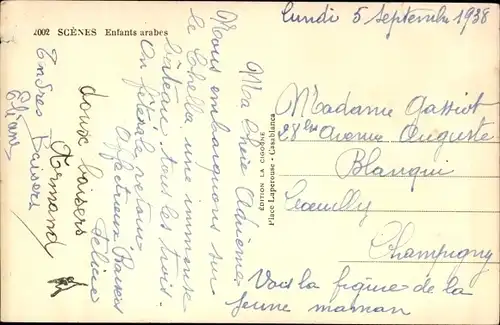 4002 SCÈNES Enfants arabes
Lundi 5 Septembre 1938
Ma Chère Adrienne
Nous embarquons sur
le Chella, une immense
bateau, tous les trois.
On fêtera le retour
Affectueux Baisers
Félicie
doux baisers
Armand
Tendres Baisers
ÉDITION LA CIGOGNE
Place Laperouse - Casablanca
Madame Gassiot
28 bis Avenue Auguste
Blanqui
Coeuilly
Champigny
Vois la figure de la
jeune maman